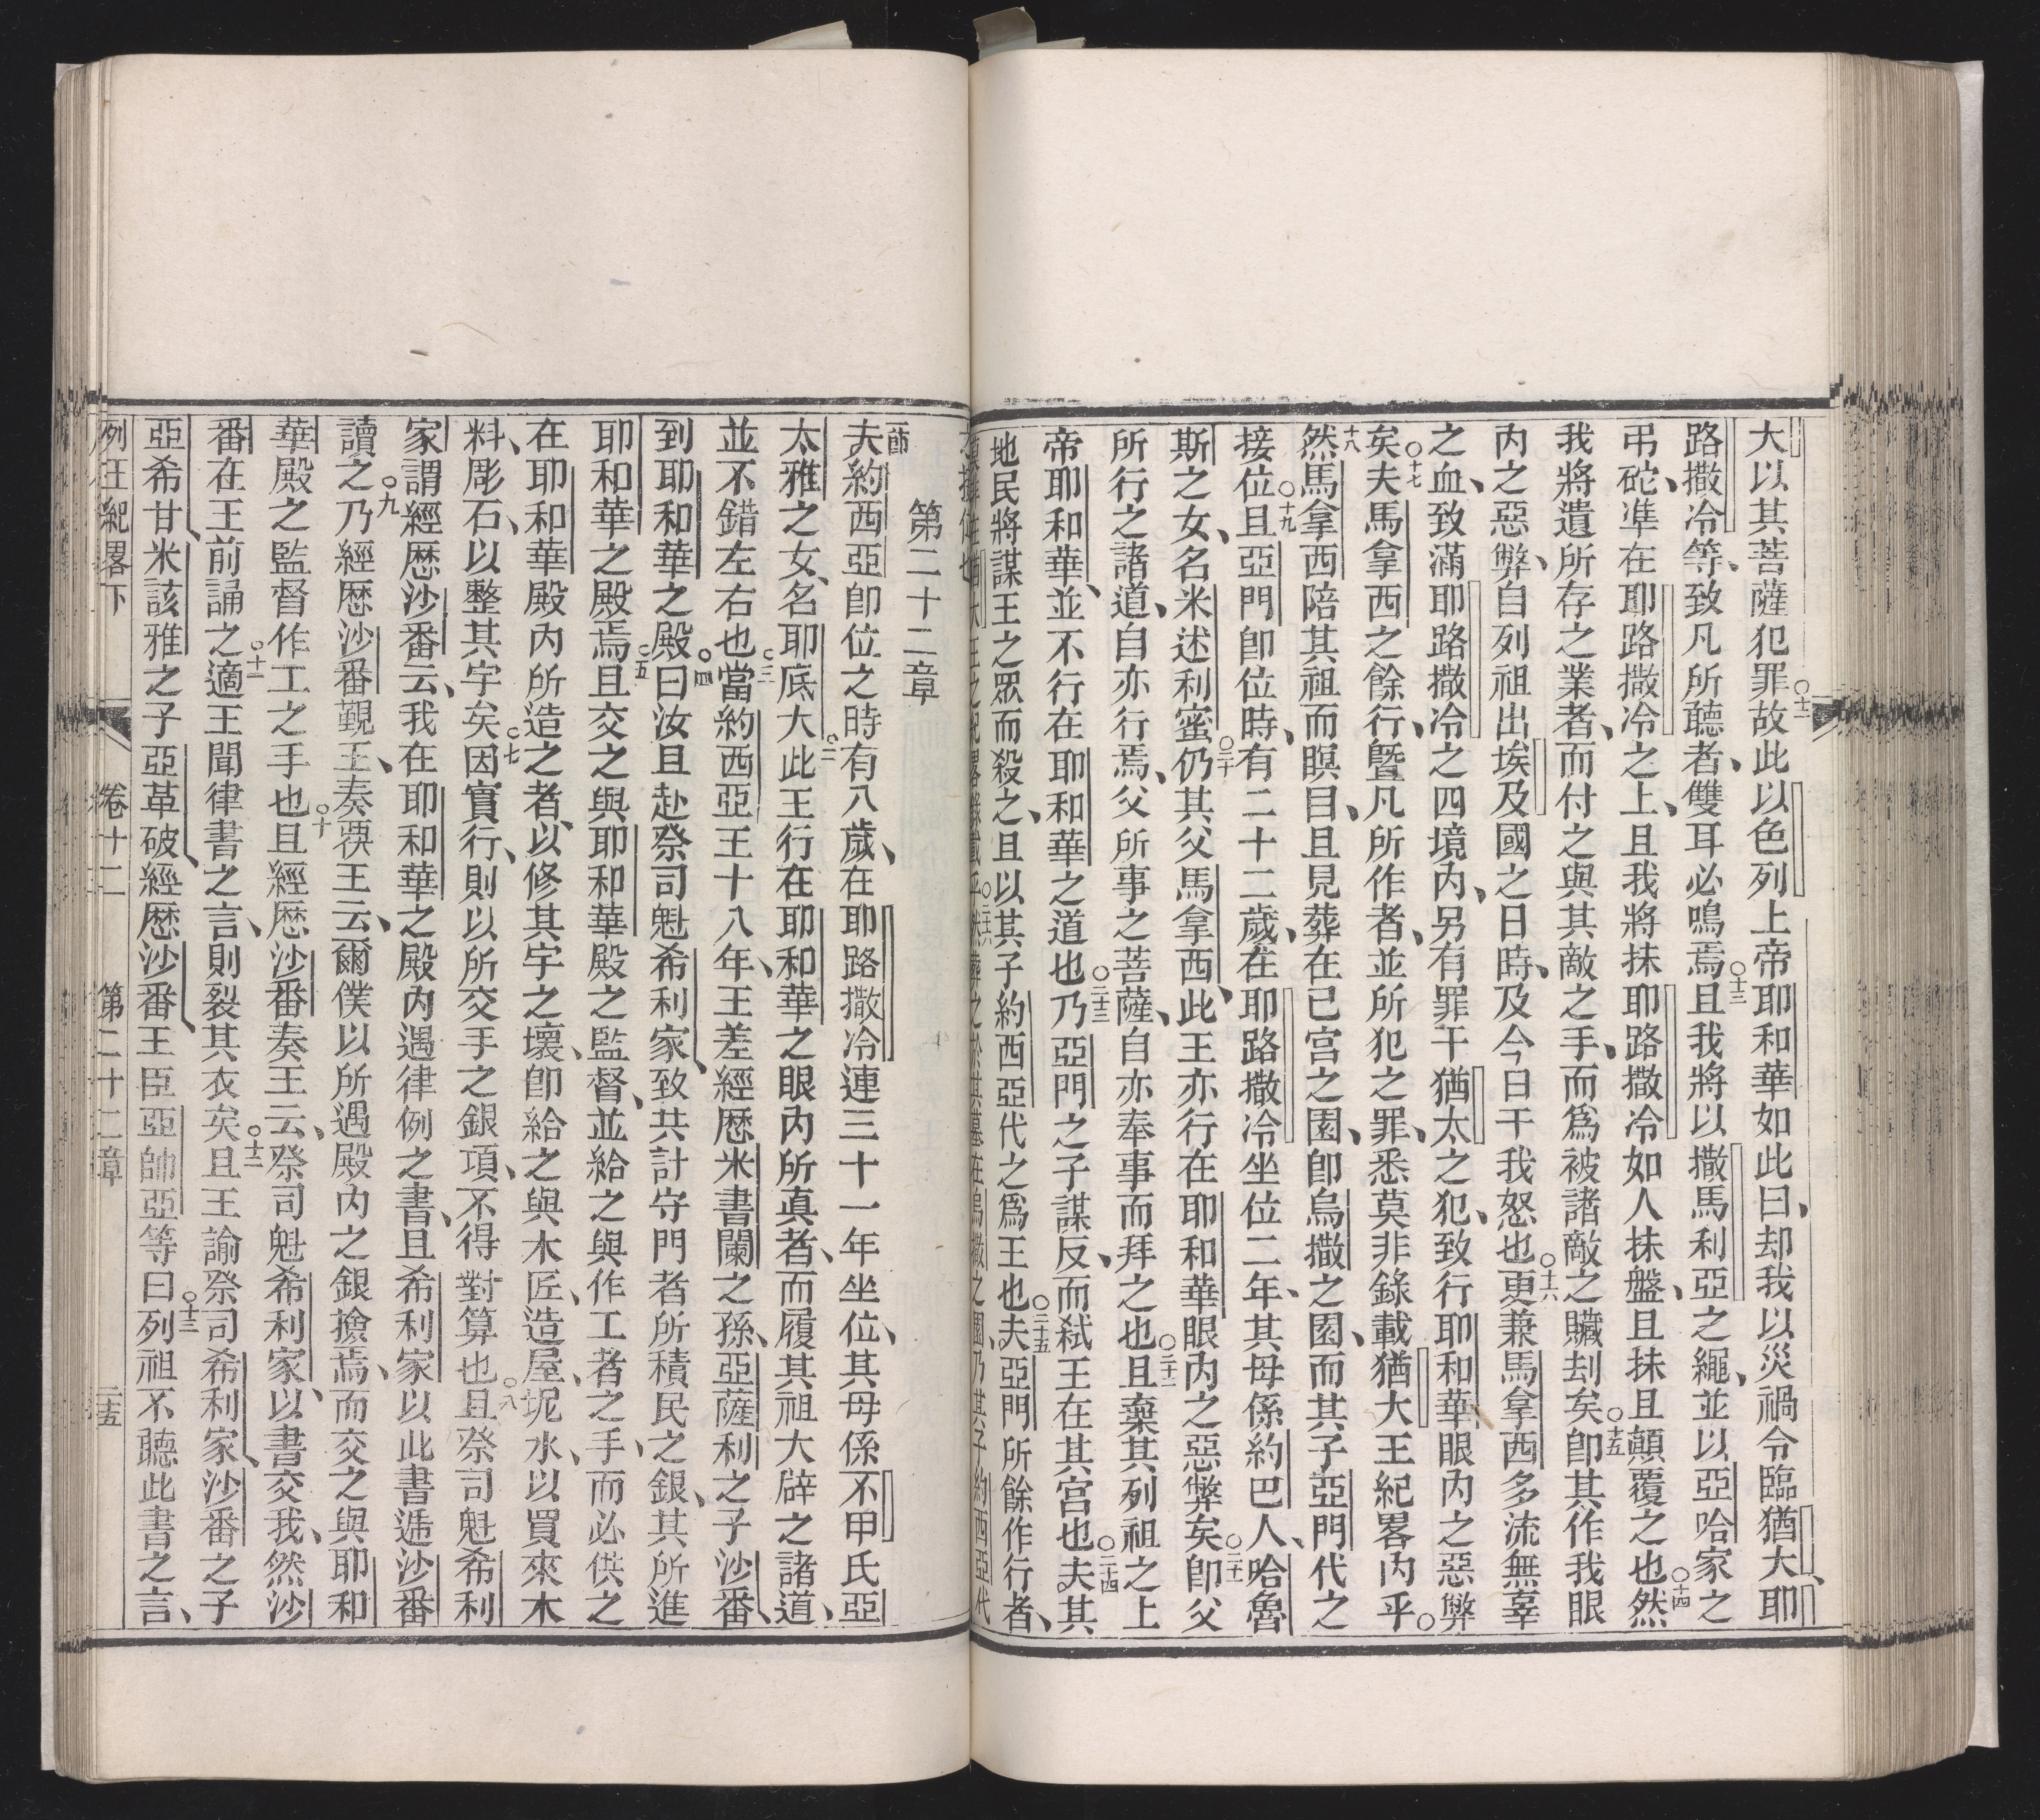 大以其菩薩犯罪故○十二此以色列上帝耶和華如此曰、却我以災禍令臨猶大、耶
路撒冷等、致凡所聽者、雙耳必鳴焉○十三且我將以撒馬利亞之繩、並以亞哈家之
弔砣、準在耶路撒冷之上、且我將抹耶路撒冷如人抹盤、且抹且顛覆之也○十四然
我將遺所存之業者、而付之與其敵之手、而為被諸敵之贜刦矣○十五卽其作我眼
內之惡弊、自列祖出埃及國之日時、及今日干我怒也○十六更兼馬拿西多流無辜
之血、致滿耶路撒冷之四境內、另有罪干猶太之犯、致行耶和華眼內之惡弊
矣○十七夫馬拿西之餘行、暨凡所作者、並所犯之罪、悉莫非錄載猶大王紀畧內乎○
十八然馬拿西陪其祖而瞑目、且見葬在已宮之園、卽烏撒之園、而其子亞門代之
接位○十九且亞門卽位時、有二十二歲、在耶路撒冷坐位二年、其母係約巴人、哈魯
斯之女、名米述利蜜○二十仍其父馬拿西、此王亦行在耶和華眼內之惡弊矣○二十一卽父
所行之諸道、自亦行焉、父所事之菩薩、自亦奉事而拜之也○二十二且棄其列祖之上
帝耶和華、並不行在耶和華之道也○二十三乃亞門之子謀反、而弒王在其宮也○二十四夫其
地民將謀王之眾而殺之、且以其子約西亞代之為王也○二十五夫亞門所餘作行者、
在猶大王之紀畧錄載乎○二十六然葬之於其墓在烏撒之園、乃其子約西亞代
接位也
第二十二章
一節 夫約西亞卽位之時有八歲、在耶路撒冷連三十一年坐位、其母係不甲氏亞
太雅之女、名耶底大○二此王行在耶和華之眼內所真者、而履其祖大辟之諸道、
並不錯左右也○三當約西亞王十八年、王差經歷米書闌之孫、亞薩利之子沙番、
到耶和華之殿○四曰汝且赴祭司魁希利家、致共計守門者所積民之銀、其所進
耶和華之殿焉○五且交之與耶和華殿之監督、並給之與作工者之手、而必供之
在耶和華殿內所造之者、以修其宇之壞、卽給之與木匠、造屋、坭水、以買來木
料、彫石、以整其宇矣○七因實行、則以所交手之銀項、不得對算也○八且祭司魁希利
家謂經歷沙番云、我在耶和華之殿內遇律例之書、且希利家以此書遞沙番
讀之○九乃經歷沙番覲王、奏覆王云、爾僕以所遇殿內之銀撿焉、而交之與耶和
華殿之監督作工之手也○十且經歷沙番奏王云、祭司魁希利家、以書交我、然沙
番在王前誦之○十一適王聞律書之言、則裂其衣矣○十二且王諭祭司希利家、沙番之子
亞希甘、米該雅之子亞革破、經歷沙番、王臣亞帥亞等曰○十三列祖不聽此書之言、
列王紀畧下 卷十二 第二十二章 二十五